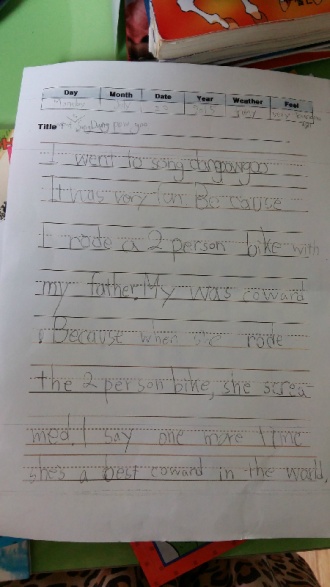 Day Month Date Year Weather Feel
Title
I went to song dongpangos
It was vary fun Be cause
I rode a 2 person bike with
my father. My was coward
Because when she rode
the 2 person bike, she screa
med. I say one more time
she's a best coward in the world,